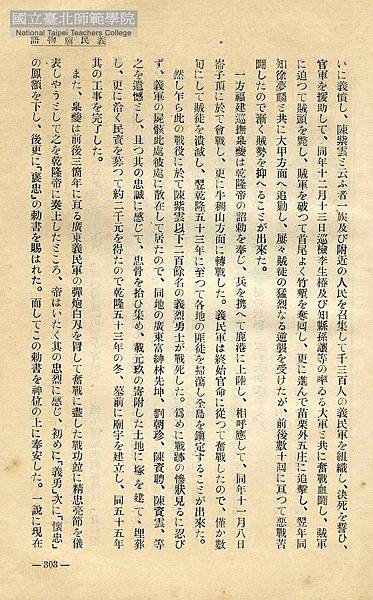 國立臺北師範學院
National Taipei Teachers College
義民廟物語
いに義憤し、陳紫雲と云ふ者一族及び附近の人民を召集して千三百人の義民軍を組織し、決死を誓ひ、
官軍を援助して、同年十二月十三日巡檢李生椿及び知縣孫讓等の率ゐる大軍と共に奮戰血鬪し、賊軍
に迫つて賊頭を斃し、賊軍を破つて首尾よく竹塹を奪囘し、更に進んで苗栗外五庄に追擊し、翌年同
知徐夢麟と共に大甲方面へ追動し、屢々賊徒の猛烈なる逆襲を受けたが、前後數十囘に亙つて惡戰苦
鬪したので漸く賊勢を抑へることが出來た。
一方福建巡撫泉夔は乾隆帝の詔勅を奉じ、兵を携へて鹿港に上陸し、相呼應して、同年十一月八日
崙子頂に於て會戰し、更に牛稠山方面に轉戰した。義民軍は終始官命に從つて奮戰したので、僅か數
旬にして賊徒を潰滅し、翌乾隆五十三年に至つて各地の匪徒を掃蕩し全島を鎭定することが出來た。
然し乍ら此の戰役に於て陳紫雲以下二百餘名の義烈勇士が戰死した。爲めに戰跡の慘狀見るに忍び
ず、義軍の屍骸此處彼處に散在して居たので、同地の廣東富紳林先坤、劉朝珍、陳資聘、陳資雲、等
之を遺憾とし、且つ其の忠誠に感じて、忠骨を拾ひ集め、戴元玖の寄附した土地に塚を建て、埋葬
し、更に洽く民資を募つて約二千元を得たので乾隆五十三年の冬、墓前に廟宇を建立し、同五十五年
其の工事を完了した。
また、泉夔は前後三箇年に亙る廣東義民軍の彈炮白刃を冒して奮戰に盡した戰功竝に精忠亮節を儀
表しやうとして之を乾隆帝に奏上したところ、帝はいたく其の忠烈に感じ、初めに「義勇」次に「懷忠」
の鳳額を下し、後更に「褒忠」の勅書を賜はれた。而してこの勅書を神位の上に奉安した。一說に現在
— 303 —